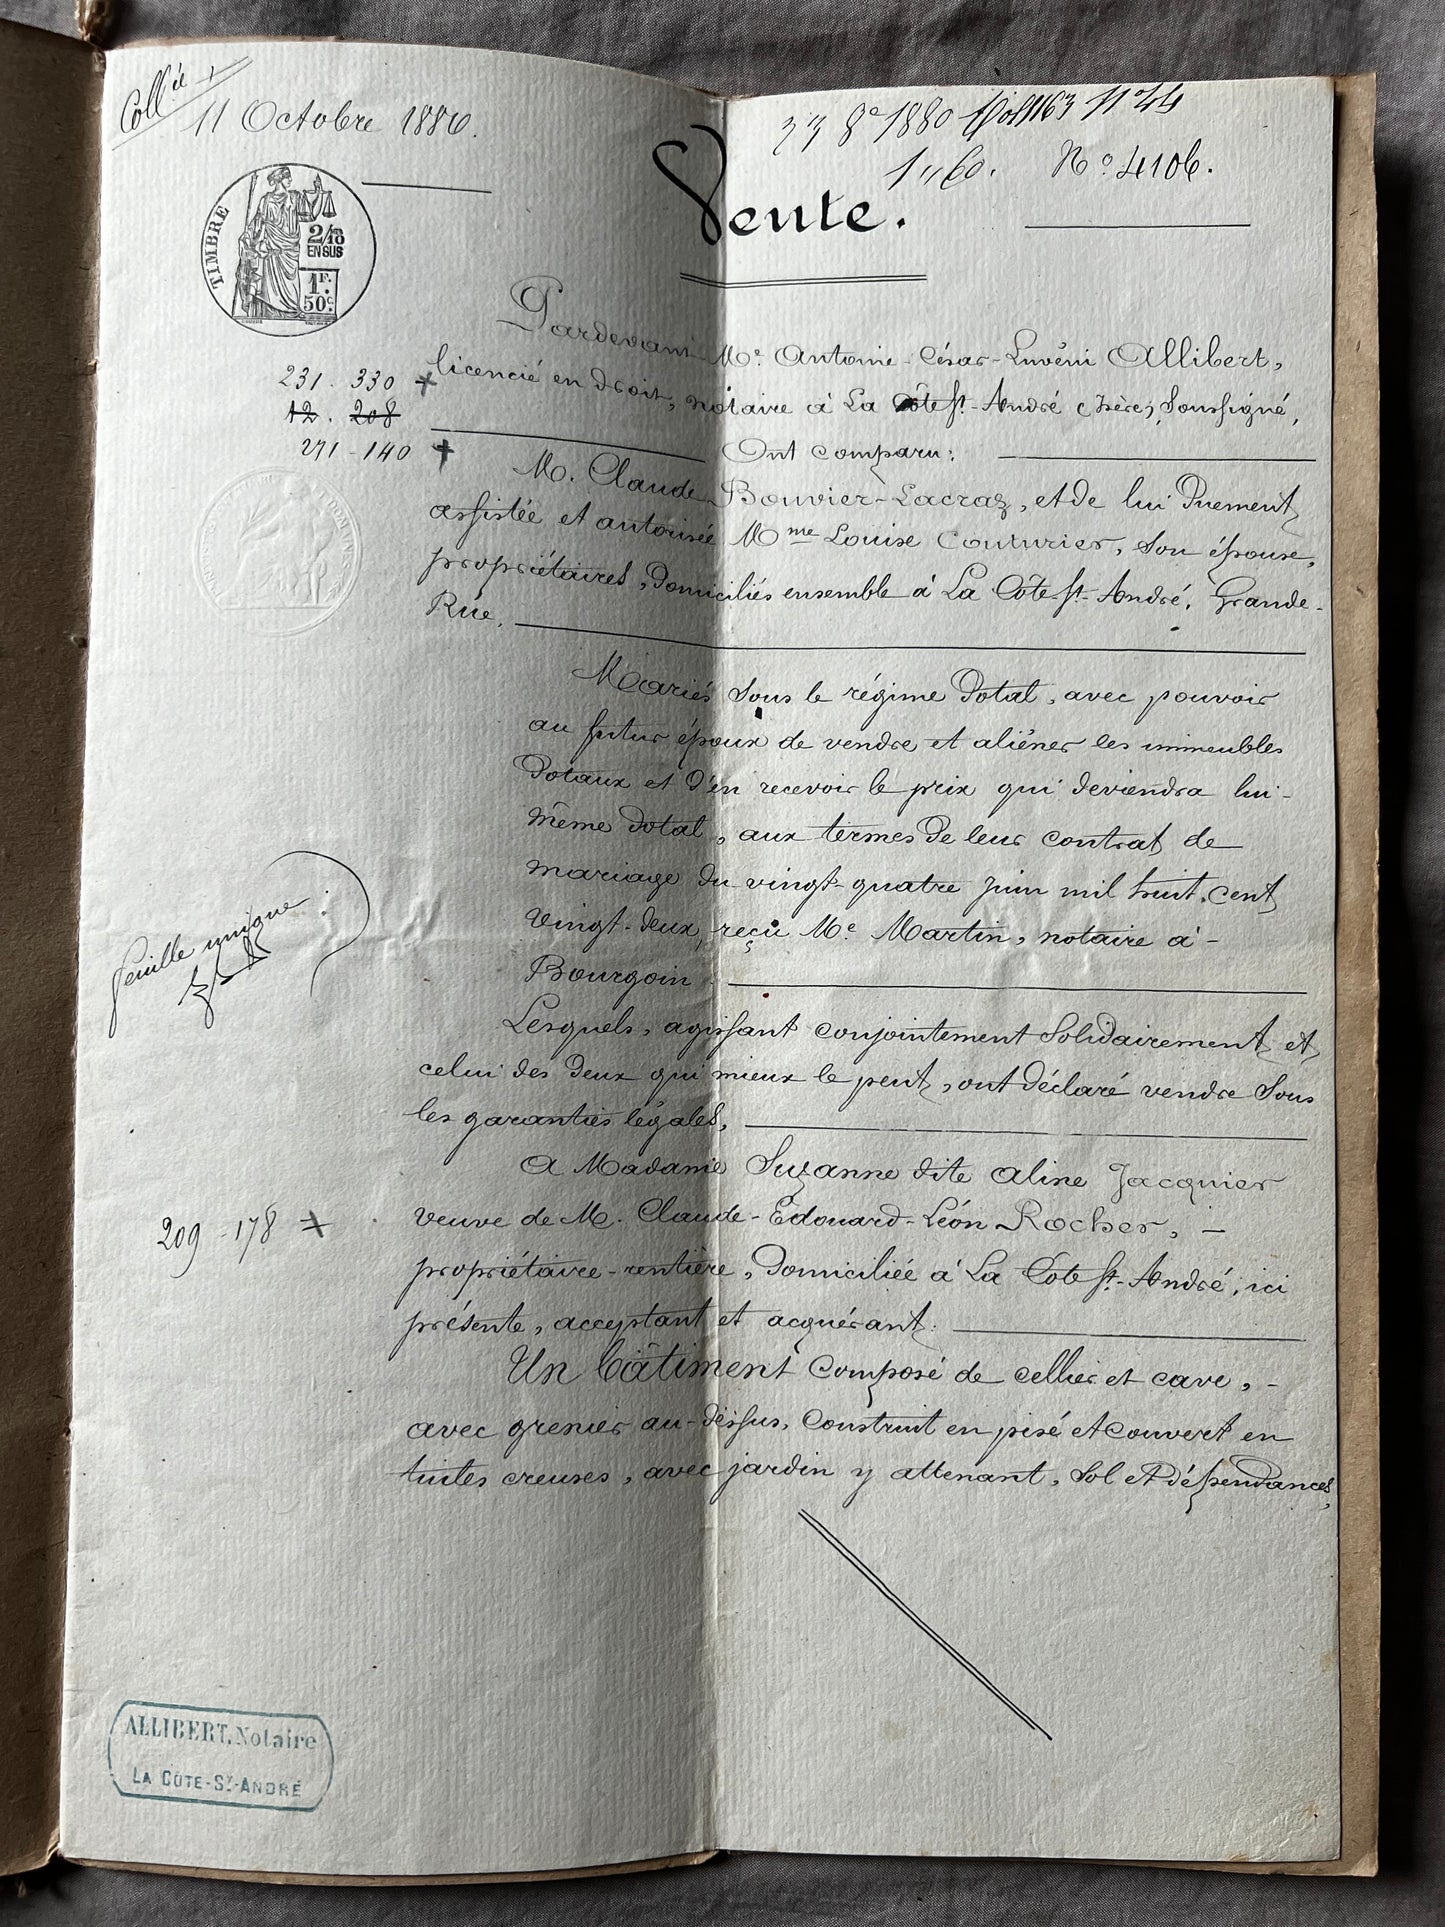 Coll.ée
11 Octobre 1880.
8e 1880 fol 163 N° 44
1"60. N° 4106.
TIMBRE
2/10
EN SUS
1F.
50c.
Vente.
Pardevant Me. Antoine-César-Luvéni Allibert,
licencié en droit, notaire à La Côte St-André (Isère), soussigné,
231. 330
12. 208
271-140
Ont comparu:
M. Claude Bouvier-Lacraz, et de lui dûment
assistée et autorisée Mme Louise Couturier, son épouse,
propriétaires, domiciliés ensemble à La Côte St-André, Grande-
Rue.
Mariés sous le régime dotal, avec pouvoir
au futur époux de vendre et aliéner les immeubles
dotaux et d'en recevoir le prix qui deviendra lui-
même dotal, aux termes de leur contrat de
mariage du vingt-quatre juin mil huit-cent
vingt-deux, reçu Me. Martin, notaire à -
Bourgoin.
feuille unique
Lesquels, agissant conjointement solidairement et
celui des deux qui mieux le peut, ont déclaré vendre sous
les garanties légales,
A Madame Suzanne dite Aline Jacquier
veuve de M. Claude-Edouard-Léon Rocher, -
209-178
propriétaire-rentière, domiciliée à La Côte St-André, ici
présente, acceptant et acquérant:
Un bâtiment composé de cellier et cave, -
avec grenier au-dessus, construit en pisé et couvert en
tuiles creuses, avec jardin y attenant, sol et dépendances,
ALLIBERT, Notaire
LA COTE-ST-ANDRÉ